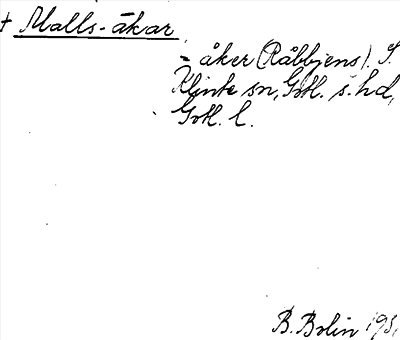 + Malls-åkar
= åker (Råbbjens). S.
Klinte sn, Gotl. s. hd,
Gotl. l.
B. Bolin 193